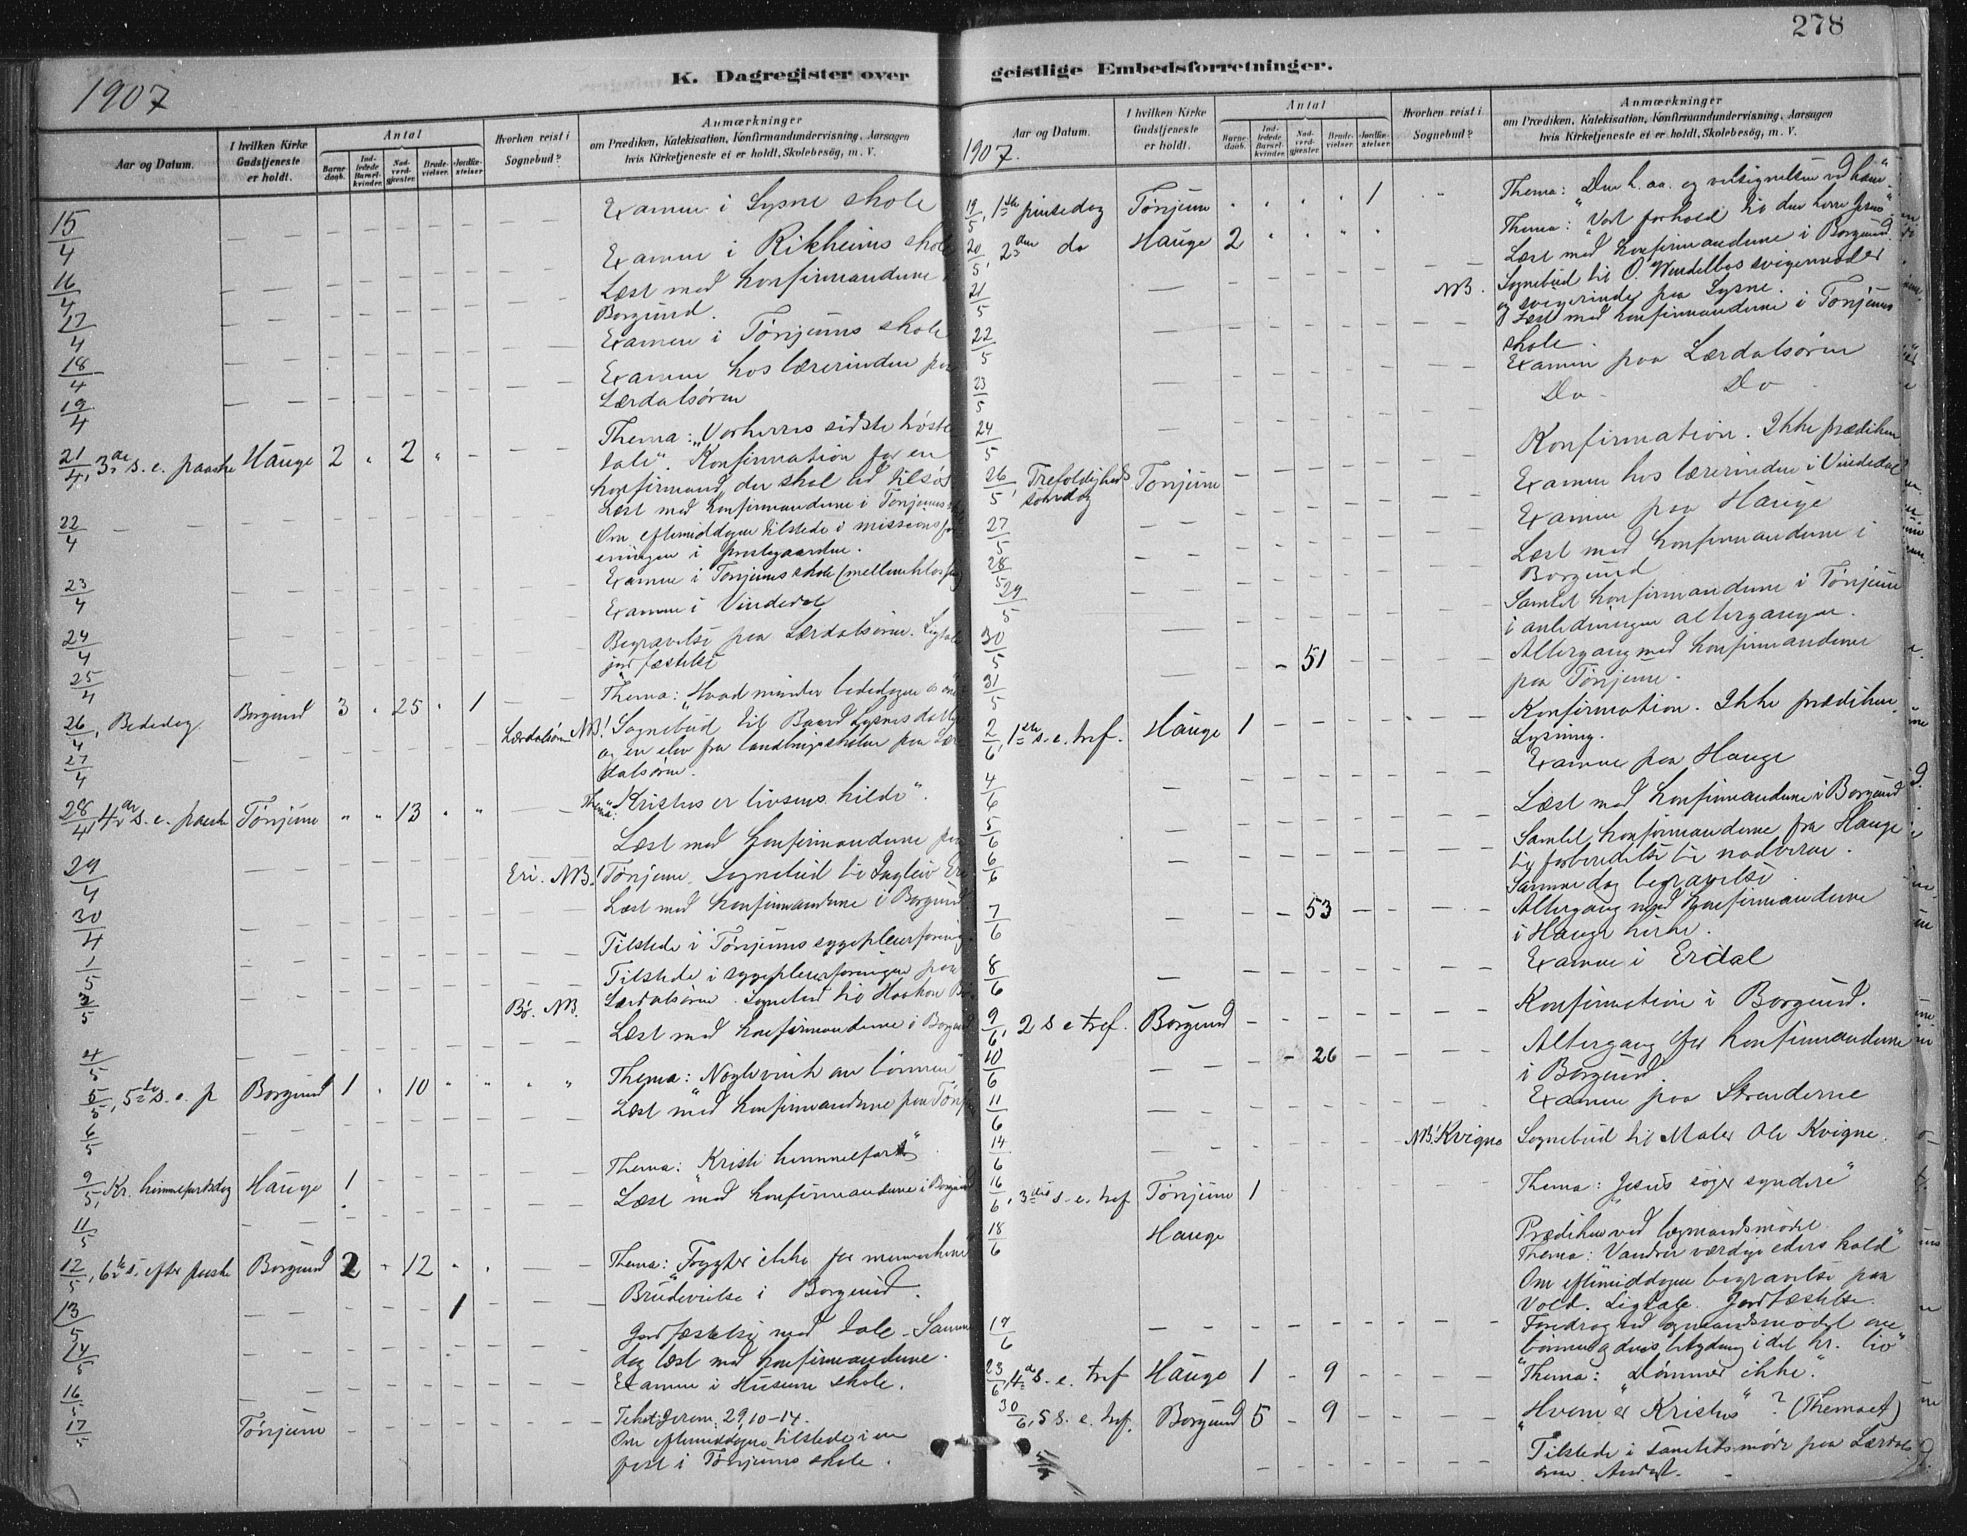 278
K. Dagregister over geistlige Embedsforretninger.
1907
Aar og Datum.
I hvilken Kirke Gudstjeneste er holdt.
Antal
Barnedaab.
Indledede Barselkvinder.
Nadverdgjester.
Brudevielser.
Jordfæstelser.
Hvorhen reist i Sognebud?
Anmærkninger
om Prædiken, Katekisation, Konfirmandundervisning, Aarsagen
hvis Kirketjeneste ei er holdt, Skolebesög, m. V.
15/4 Examen i Lysne skole
16/4 Examen i Rikheims skole
17/4 Læst med konfirmanderne
Borgund.
18/4 Examen i Tønjums skole
19/4 Examen hos lærerinden paa
Lærdalsøren
21/4, 3die s. e. paaske Hauge 2 " 2 " -
Thema: "Vorherres sidste
tale". Konfirmation for en
konfirmand, der skal
22/4 Læst med konfirmanderne i Tønjums
Om eftermiddagen tilstede i missionsfor
eningen i prestegaarden.
23/4 Examen i Tønjums skole
24/4 Examen i Vindedal
25/4 Begravelse paa Lærdalsøren. Ligtale
jordfæstelse
26/4, Bededag Borgund 3 " 25 " 1
Thema: "Hvad minder bededagen os
27/4 Lærdalsøren NB! Sognebud til Baard Lysnes
og en elev fra landbrugsskolen paa Lær
dalsøren.
28/4, 4de s. e. paaske Tønjum " " 13 " "
Thema: "Kristus er livsens kilde".
29/4 Læst med konfirmanderne paa
Eri. NB! Tønjum. Sognebud til
30/4 Læst med konfirmanderne i Borgund
1/5 Tilstede i Tønjums sygepleieforening
3/5 Tilstede i sygepleieforeningen paa
NB. Lærdalsøren. Sognebud til Haakon
4/5 Læst med konfirmanderne i Borgund
5/5, 5te s. e. p Borgund 1 " 10 " " " "
Thema:
6/5 Læst med konfirmanderne paa Tønjum
9/5, Kr. himmelfartsdag Hauge 1
Thema: "Kristi himmelfart"
11/5 Læst med konfirmanderne i Borgund
12/5, 6te s. efter paaske Borgund 2 - 12 " "
Thema: "Frygter ikke for menneskene"
13/5 1 Brudevielse i Borgund.
14/5 Jordfæstelse med tale. Samme
dag læst med konfirmanderne.
16/5 Examen i Husum skole.
17/5 Tønjum
Tekst: Jerem. 29, 10-14.
Om eftermiddagen tilstede i en
fest i Tønjums skole.
1907.
Aar og Datum.
I hvilken Kirke Gudstjeneste er holdt.
Antal
Barnedaab.
Indledede Barselkvinder.
Nadverdgjester.
Brudevielser.
Jordfæstelser.
Hvorhen reist i Sognebud?
Anmærkninger
om Prædiken, Katekisation, Konfirmandundervisning, Aarsagen
hvis Kirketjeneste ei er holdt, Skolebesög, m. V.
19/5, 1ste pinsedag Tønjum " " " " 1 "
Thema: "Den h. aa. og velsignelsen ved ham".
20/5, 2den do Hauge 2 " " " "
Thema: "Vort forhold til den herre Jesus".
21/5 Læst med konfirmanderne i Borgund.
NB. Sognebud til O. Vendelbos svigermoder
og svigerinde paa Lysne.
22/5 Læst med konfirmanderne i Tønjums
skole.
23/5 Examen paa Lærdalsøren
24/5 Do. Do
26/5, Trefoldigheds søndag Tønjum
Konfirmation. Ikke prædiken
27/5 Examen hos lærerinden i Vindedal
28/5 Examen paa Hauge
29/5 Læst med konfirmanderne i
Borgund
30/5 Samlet konfirmanderne i Tønjum
i anledningen altergangen.
31/5 51 Altergang med konfirmanderne
paa Tønjum.
2/6, 1ste s. e. tref. Hauge 1
Konfirmation. Ikke prædiken.
Lysning.
4/6 Examen paa Hauge
5/6 Læst med konfirmanderne i Borgund
6/6 Samlet konfirmanderne fra Hauge
til forberedelse til nadveren.
Samme dag begravelse.
7/6 53 Altergang med konfirmanderne
i Hauge kirke.
8/6 Examen i Erdal
9/6, 2 s e tref. Borgund Konfirmation i Borgund.
10/6 26 Altergang for konfirmanderne
i Borgund
11/6 Examen paa Strenderne
14/6 NB! Kvigne Sognebud til Maler Ole Kvigne.
16/6, 3die s. e. tref Tønjum 1 Thema: "Jesus søger syndere"
18/6 Hauge Prædiken ved lægmandsmødet.
Thema: "Vandrer værdige eders kald"
Om eftermiddagen begravelse paa
Vold. Ligtale. Jordfæstelse.
17/6 Foredrag ved lægmandsmødet om
bønnen og dens betydning i det kr. liv"
23/6, 4de s. e. tref Hauge 1 - 9 Thema: "Dømmer ikke".
30/6, 5 s. e. tref. Borgund 5 - 9 "Hvem er Kristus"? (Themaet)
Tilstede i sanitetsmøde paa Lærdals
øren. Andagt.